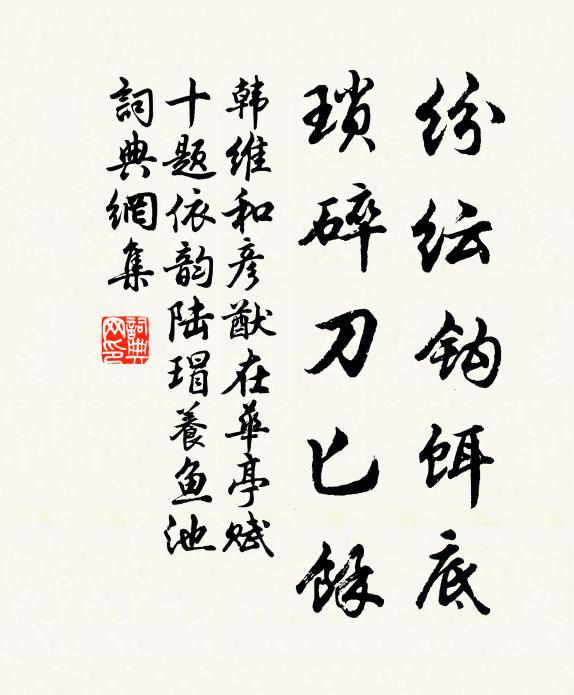 纷纭钩饵底
瑣碎刀匕餘
韩维和彦猷在華亭赋
十题依韵陆瑁養鱼池
詞典網集
詞典網印